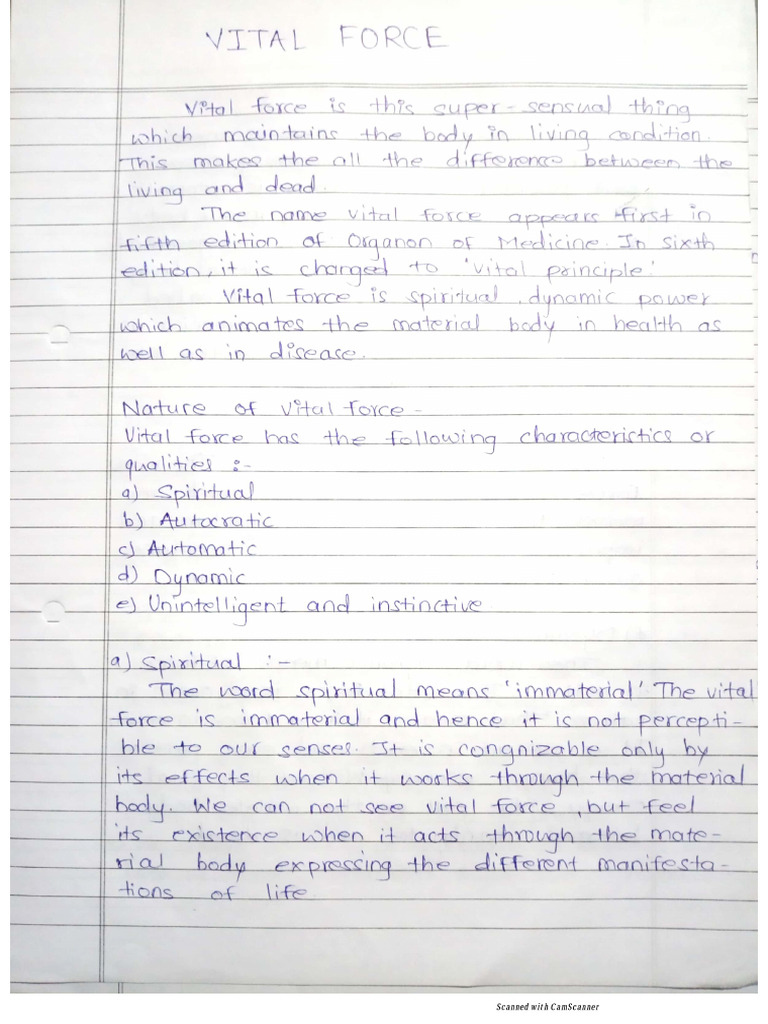 VITAL FORCE
Vital force is this super-sensual thing
which maintains the body in living condition.
This makes the all the difference between the
living and dead.
The name vital force appears first in
fifth edition of Organon of Medicine. In sixth
edition, it is changed to 'vital principle.'
Vital force is spiritual, dynamic power
which animates the material body in health as
well as in disease.
Nature of vital force -
Vital force has the following characteristics or
qualities :-
a) Spiritual
b) Autocratic
c) Automatic
d) Dynamic
e) Unintelligent and instinctive
a) Spiritual :-
The word spiritual means 'immaterial' The vital
force is immaterial and hence it is not percepti-
ble to our senses. It is congnizable only by
its effects when it works through the material
body. We can not see vital force, but feel
its existence when it acts through the mate-
rial body expressing the different manifesta-
tions of life
Scanned with CamScanner